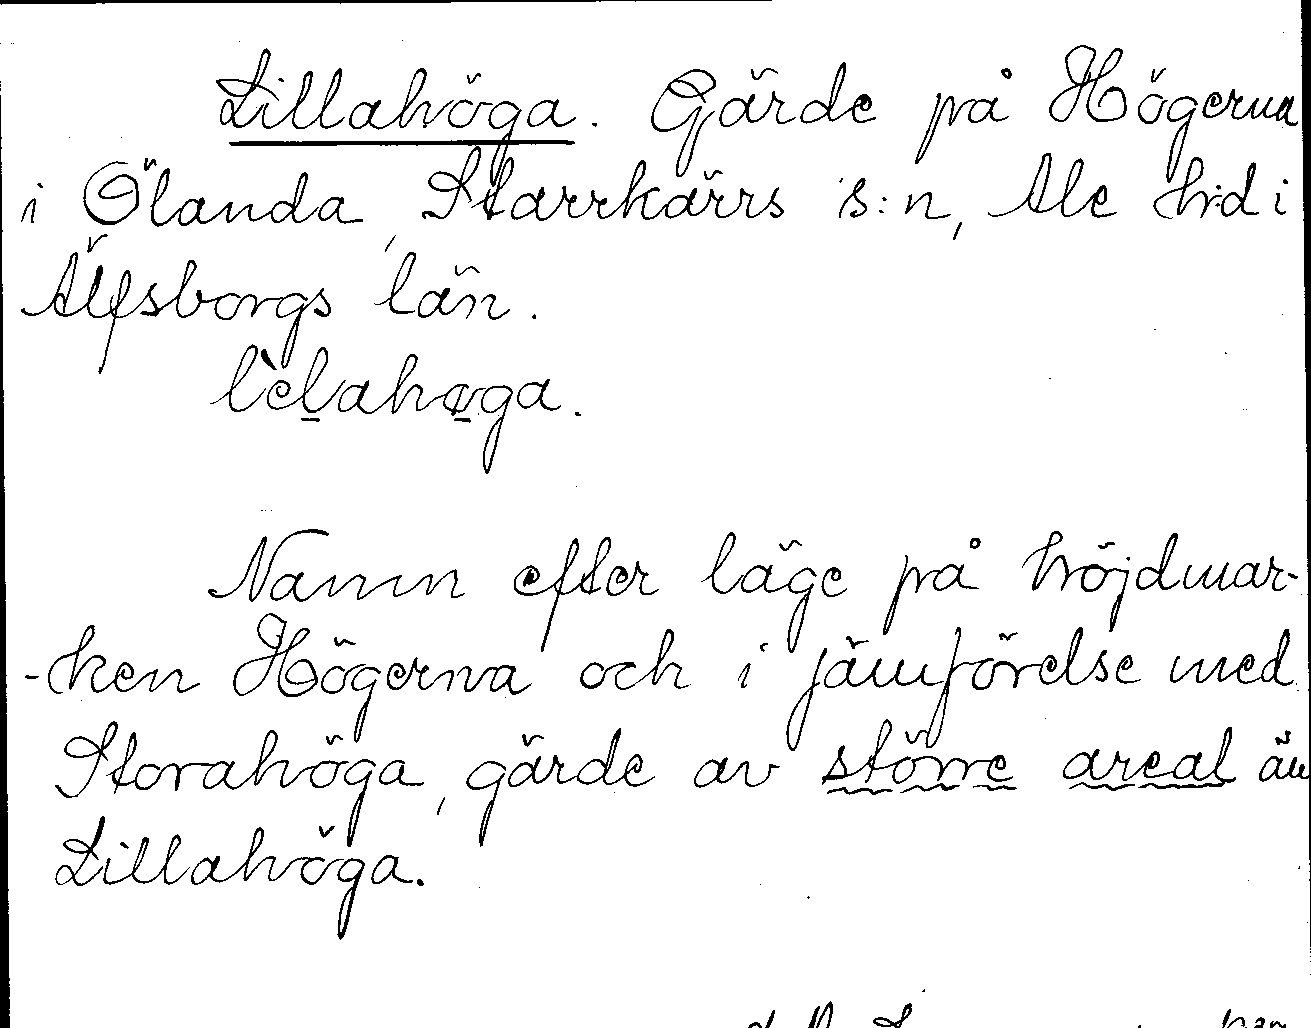 Lillahöga. Gärde på Högerna
i Ölanda, Starrkärrs s:n, Ale h:d i
Älfsborgs län.
lèḻahø̱ga.
Namn efter läge på höjdmar-
-ken Högerna och i jämförelse med
Storahöga, gärde av större areal än
Lillahöga.